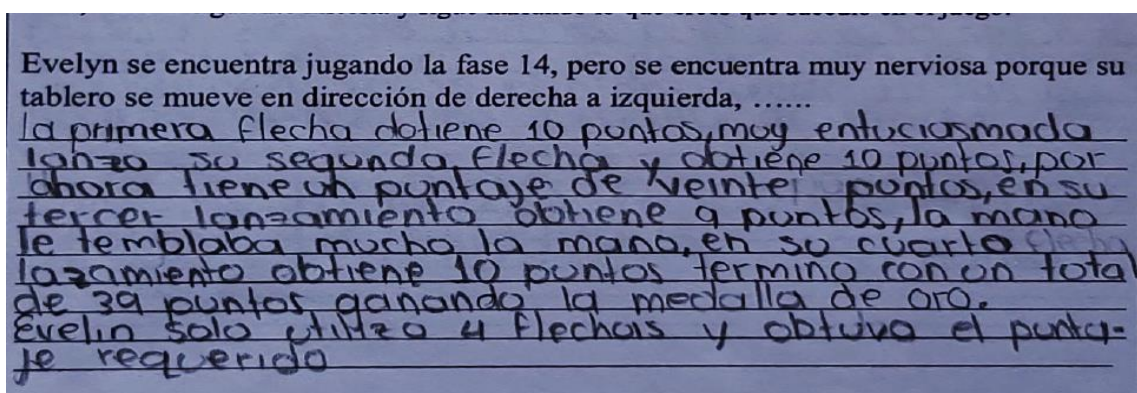 Evelyn se encuentra jugando la fase 14, pero se encuentra muy nerviosa porque su
tablero se mueve en dirección de derecha a izquierda, ......
la primera flecha obtiene 10 puntos, muy entuciasmada
lanzo su segunda flecha y obtiene 10 puntos, por
ahora tiene un puntaje de veinte puntos, en su
tercer lanzamiento obtiene 9 puntos, la mano
le temblaba mucho la mano, en su cuarto
lazamiento obtiene 10 puntos termino con un total
de 39 puntos ganando la medalla de oro.
Evelin solo utilizo 4 flechas y obtuvo el punta-
je requerido